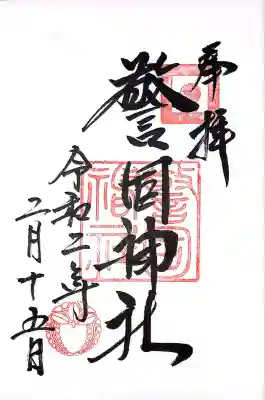 奉拝
警固神社
令和二年
二月十五日